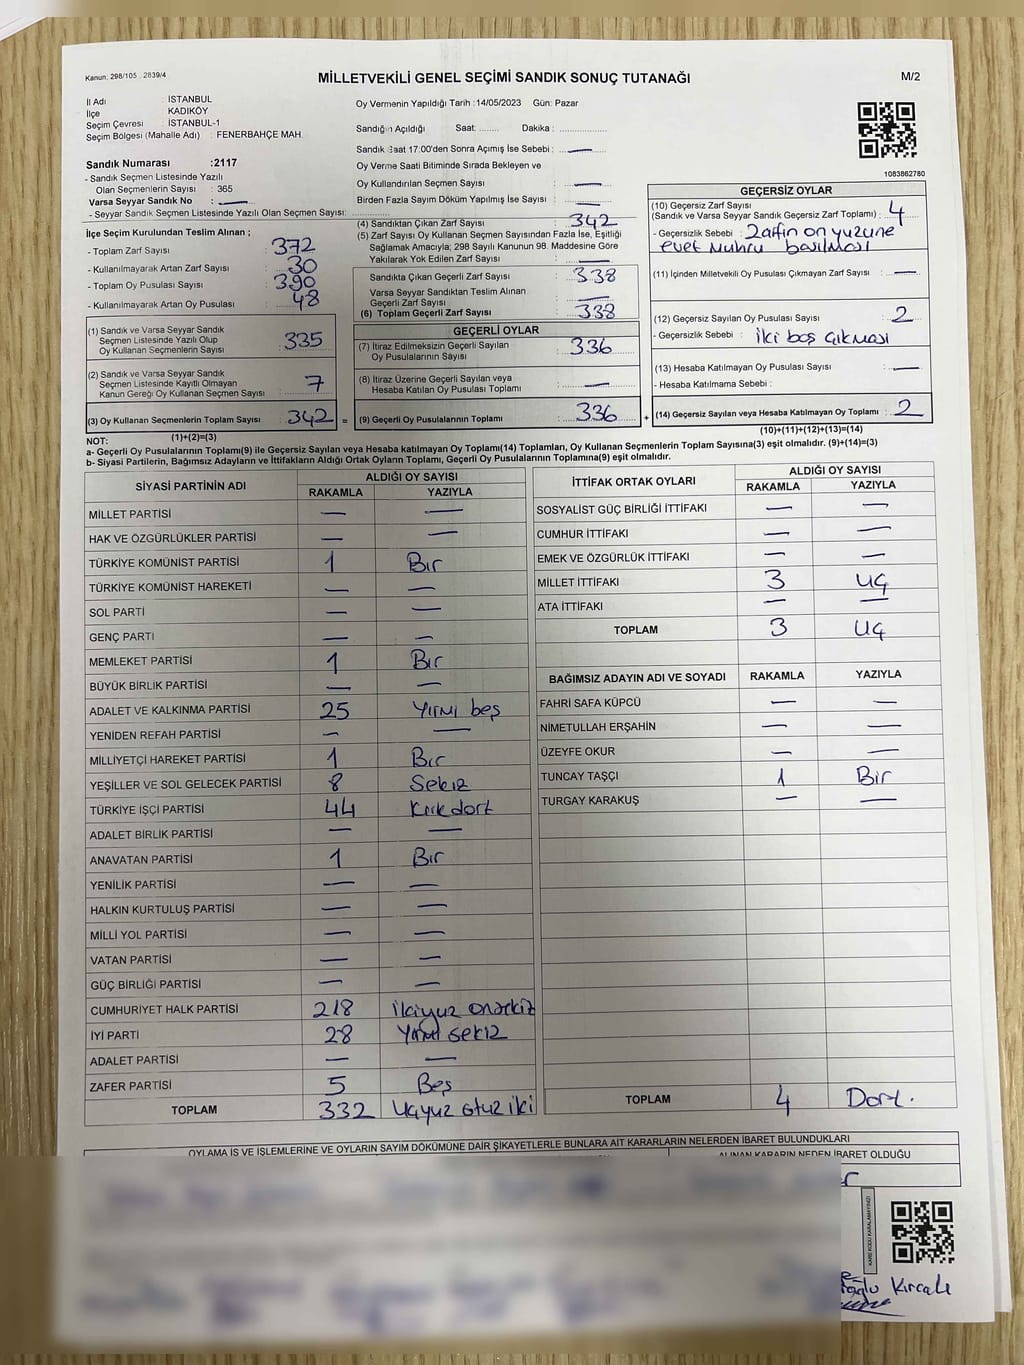 Kanun: 298/105 . 2839/4
MİLLETVEKİLİ GENEL SEÇİMİ SANDIK SONUÇ TUTANAĞI
M/2
İl Adı : İSTANBUL
İlçe : KADIKÖY
Seçim Çevresi : İSTANBUL-1
Seçim Bölgesi (Mahalle Adı) : FENERBAHÇE MAH.
Sandık Numarası :2117
- Sandık Seçmen Listesinde Yazılı
Olan Seçmenlerin Sayısı : 365
Varsa Seyyar Sandık No : —
- Seyyar Sandık Seçmen Listesinde Yazılı Olan Seçmen Sayısı:
Oy Vermenin Yapıldığı Tarih :14/05/2023 Gün: Pazar
Sandığın Açıldığı Saat: ........ Dakika : ....................
Sandık Saat 17:00'den Sonra Açımış İse Sebebi : —
Oy Verme Saati Bitiminde Sırada Bekleyen ve
Oy Kullandırılan Seçmen Sayısı : —
Birden Fazla Sayım Döküm Yapılmış İse Sayısı : —
1083862780
İlçe Seçim Kurulundan Teslim Alınan ;
- Toplam Zarf Sayısı : 372
- Kullanılmayarak Artan Zarf Sayısı : 30
- Toplam Oy Pusulası Sayısı : 390
- Kullanılmayarak Artan Oy Pusulası : 48
(1) Sandık ve Varsa Seyyar Sandık
Seçmen Listesinde Yazılı Olup
Oy Kullanan Seçmenlerin Sayısı : 335
(2) Sandık ve Varsa Seyyar Sandık
Seçmen Listesinde Kayıtlı Olmayan
Kanun Gereği Oy Kullanan Seçmen Sayısı : 7
(3) Oy Kullanan Seçmenlerin Toplam Sayısı : 342 =
(4) Sandıktan Çıkan Zarf Sayısı : 342
(5) Zarf Sayısı Oy Kullanan Seçmen Sayısından Fazla İse, Eşitliği
Sağlamak Amacıyla; 298 Sayılı Kanunun 98. Maddesine Göre
Yakılarak Yok Edilen Zarf Sayısı : —
Sandıkta Çıkan Geçerli Zarf Sayısı : 338
Varsa Seyyar Sandıktan Teslim Alınan
Geçerli Zarf Sayısı : —
(6) Toplam Geçerli Zarf Sayısı : 338
GEÇERLİ OYLAR
(7) İtiraz Edilmeksizin Geçerli Sayılan
Oy Pusulalarının Sayısı : 336
(8) İtiraz Üzerine Geçerli Sayılan veya
Hesaba Katılan Oy Pusulası Toplamı : —
(9) Geçerli Oy Pusulalarının Toplamı : 336 +
GEÇERSİZ OYLAR
(10) Geçersiz Zarf Sayısı
(Sandık ve Varsa Seyyar Sandık Geçersiz Zarf Toplamı) : 4
- Geçersizlik Sebebi : Zarfın ön yüzüne
evet mührü basılması
(11) İçinden Milletvekili Oy Pusulası Çıkmayan Zarf Sayısı : —
(12) Geçersiz Sayılan Oy Pusulası Sayısı : 2
- Geçersizlik Sebebi : iki boş çıkması
(13) Hesaba Katılmayan Oy Pusulası Sayısı : —
- Hesaba Katılmama Sebebi :
(14) Geçersiz Sayılan veya Hesaba Katılmayan Oy Toplamı : 2
NOT: (1)+(2)=(3) (10)+(11)+(12)+(13)=(14)
a- Geçerli Oy Pusulasının Toplamı(9) ile Geçersiz Sayılan veya Hesaba katılmayan Oy Toplamı(14) Toplamları, Oy Kullanan Seçmenlerin Toplam Sayısına(3) eşit olmalıdır. (9)+(14)=(3)
b- Siyasi Partilerin, Bağımsız Adayların ve İttifakların Aldığı Ortak Oyların Toplamı, Geçerli Oy Pusulalarının Toplamına(9) eşit olmalıdır.
SİYASİ PARTİNİN ADI ALDIĞI OY SAYISI
RAKAMLA YAZIYLA
MİLLET PARTİSİ — —
HAK VE ÖZGÜRLÜKLER PARTİSİ — —
TÜRKİYE KOMÜNİST PARTİSİ 1 Bır
TÜRKİYE KOMÜNİST HAREKETİ — —
SOL PARTİ — —
GENÇ PARTİ — —
MEMLEKET PARTİSİ 1 Bır
BÜYÜK BİRLİK PARTİSİ — —
ADALET VE KALKINMA PARTİSİ 25 Yırmı beş
YENİDEN REFAH PARTİSİ — —
MİLLİYETÇİ HAREKET PARTİSİ 1 Bır
YEŞİLLER VE SOL GELECEK PARTİSİ 8 Sekız
TÜRKİYE İŞÇİ PARTİSİ 44 Kırkdört
ADALET BİRLİK PARTİSİ — —
ANAVATAN PARTİSİ 1 Bır
YENİLİK PARTİSİ — —
HALKIN KURTULUŞ PARTİSİ — —
MİLLİ YOL PARTİSİ — —
VATAN PARTİSİ — —
GÜÇ BİRLİĞİ PARTİSİ — —
CUMHURİYET HALK PARTİSİ 218 ikiyuz onsekiz
İYİ PARTİ 28 Yırmı sekız
ADALET PARTİSİ — —
ZAFER PARTİSİ 5 Beş
TOPLAM 332 Uçyuz otuz iki
İTTİFAK ORTAK OYLARI ALDIĞI OY SAYISI
RAKAMLA YAZIYLA
SOSYALİST GÜÇ BİRLİĞİ İTTİFAKI — —
CUMHUR İTTİFAKI — —
EMEK VE ÖZGÜRLÜK İTTİFAKI — —
MİLLET İTTİFAKI 3 Uç
ATA İTTİFAKI — —
TOPLAM 3 Uç
BAĞIMSIZ ADAYIN ADI VE SOYADI RAKAMLA YAZIYLA
FAHRİ SAFA KÜPCÜ — —
NİMETULLAH ERŞAHİN — —
ÜZEYFE OKUR — —
TUNCAY TAŞÇI 1 Bir
TURGAY KARAKUŞ — —
TOPLAM 4 Dört.
OYLAMA İŞ VE İŞLEMLERİNE VE OYLARIN SAYIM DÖKÜMÜNE DAİR ŞİKAYETLERLE BUNLARA AİT KARARLARIN NELERDEN İBARET BULUNDUKLARI
ALINAN KARARIN NEDEN İBARET OLDUĞU
KARE KODU KARALAMAYINIZ!
Kırcalı